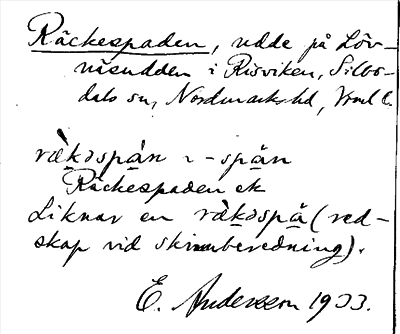 Räckespaden, udde på Löv-
näsudden i Risviken, Silbo-
dals sn, Nordmarks hd, Vrml l.
rækəspán ɿ -spān
Räckespaden ek
Liknar en rækəspā (red-
skap vid skinnberedning).
E. Andersson 1933.